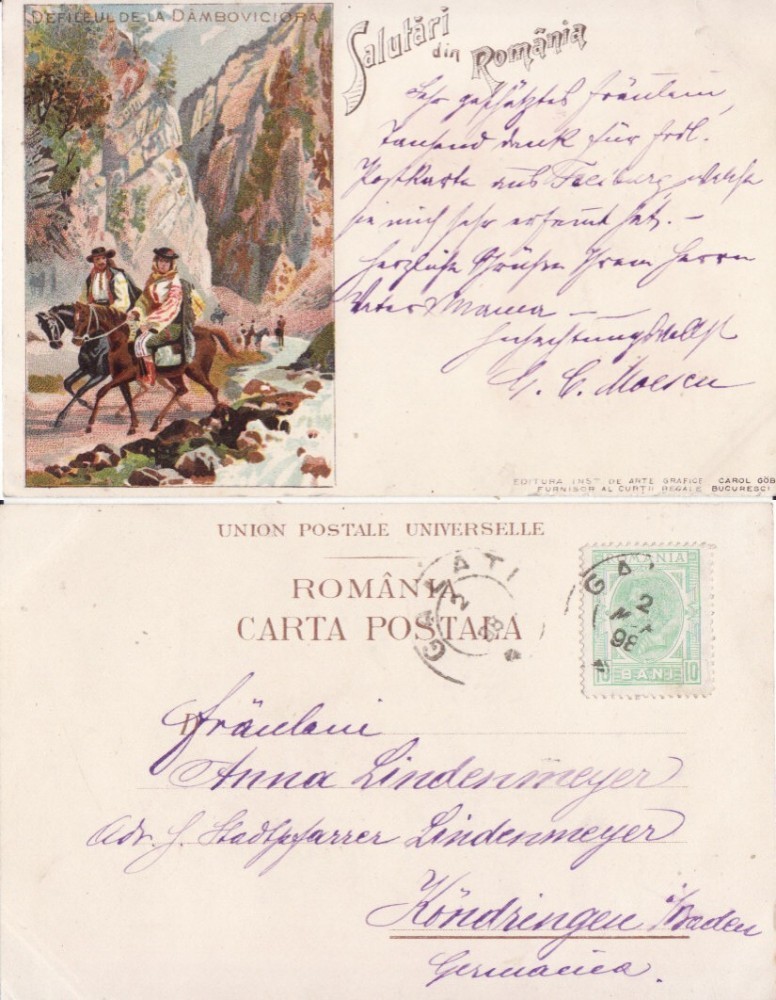 DEFILEUL DE LA DÂMBOVICIORA
Salutări
din România
Sehr geschätztes Fräulein,
Tausend dank für frdl.
Postkarte aus Freiburg, welche
sie mich sehr erfreut hat. –
Herzliche Grüße Ihrem Herrn
Vater Mama — —
Hochachtungsvollst
C. Moescu
EDITURA INST. DE ARTE GRAFICE CAROL GÖB
FURNISOR AL CURȚII REGALE BUCURESCI
UNION POSTALE UNIVERSELLE
ROMÂNIA
CARTA POSTALĂ
GALATI
2
98
ROMANIA
GA
2
98
10 BANI 10
D
Fräulein
Anna Lindenmeyer
Adr. H. Stadtpfarrer Lindenmeyer
Köndringen i/Baden
Germania.